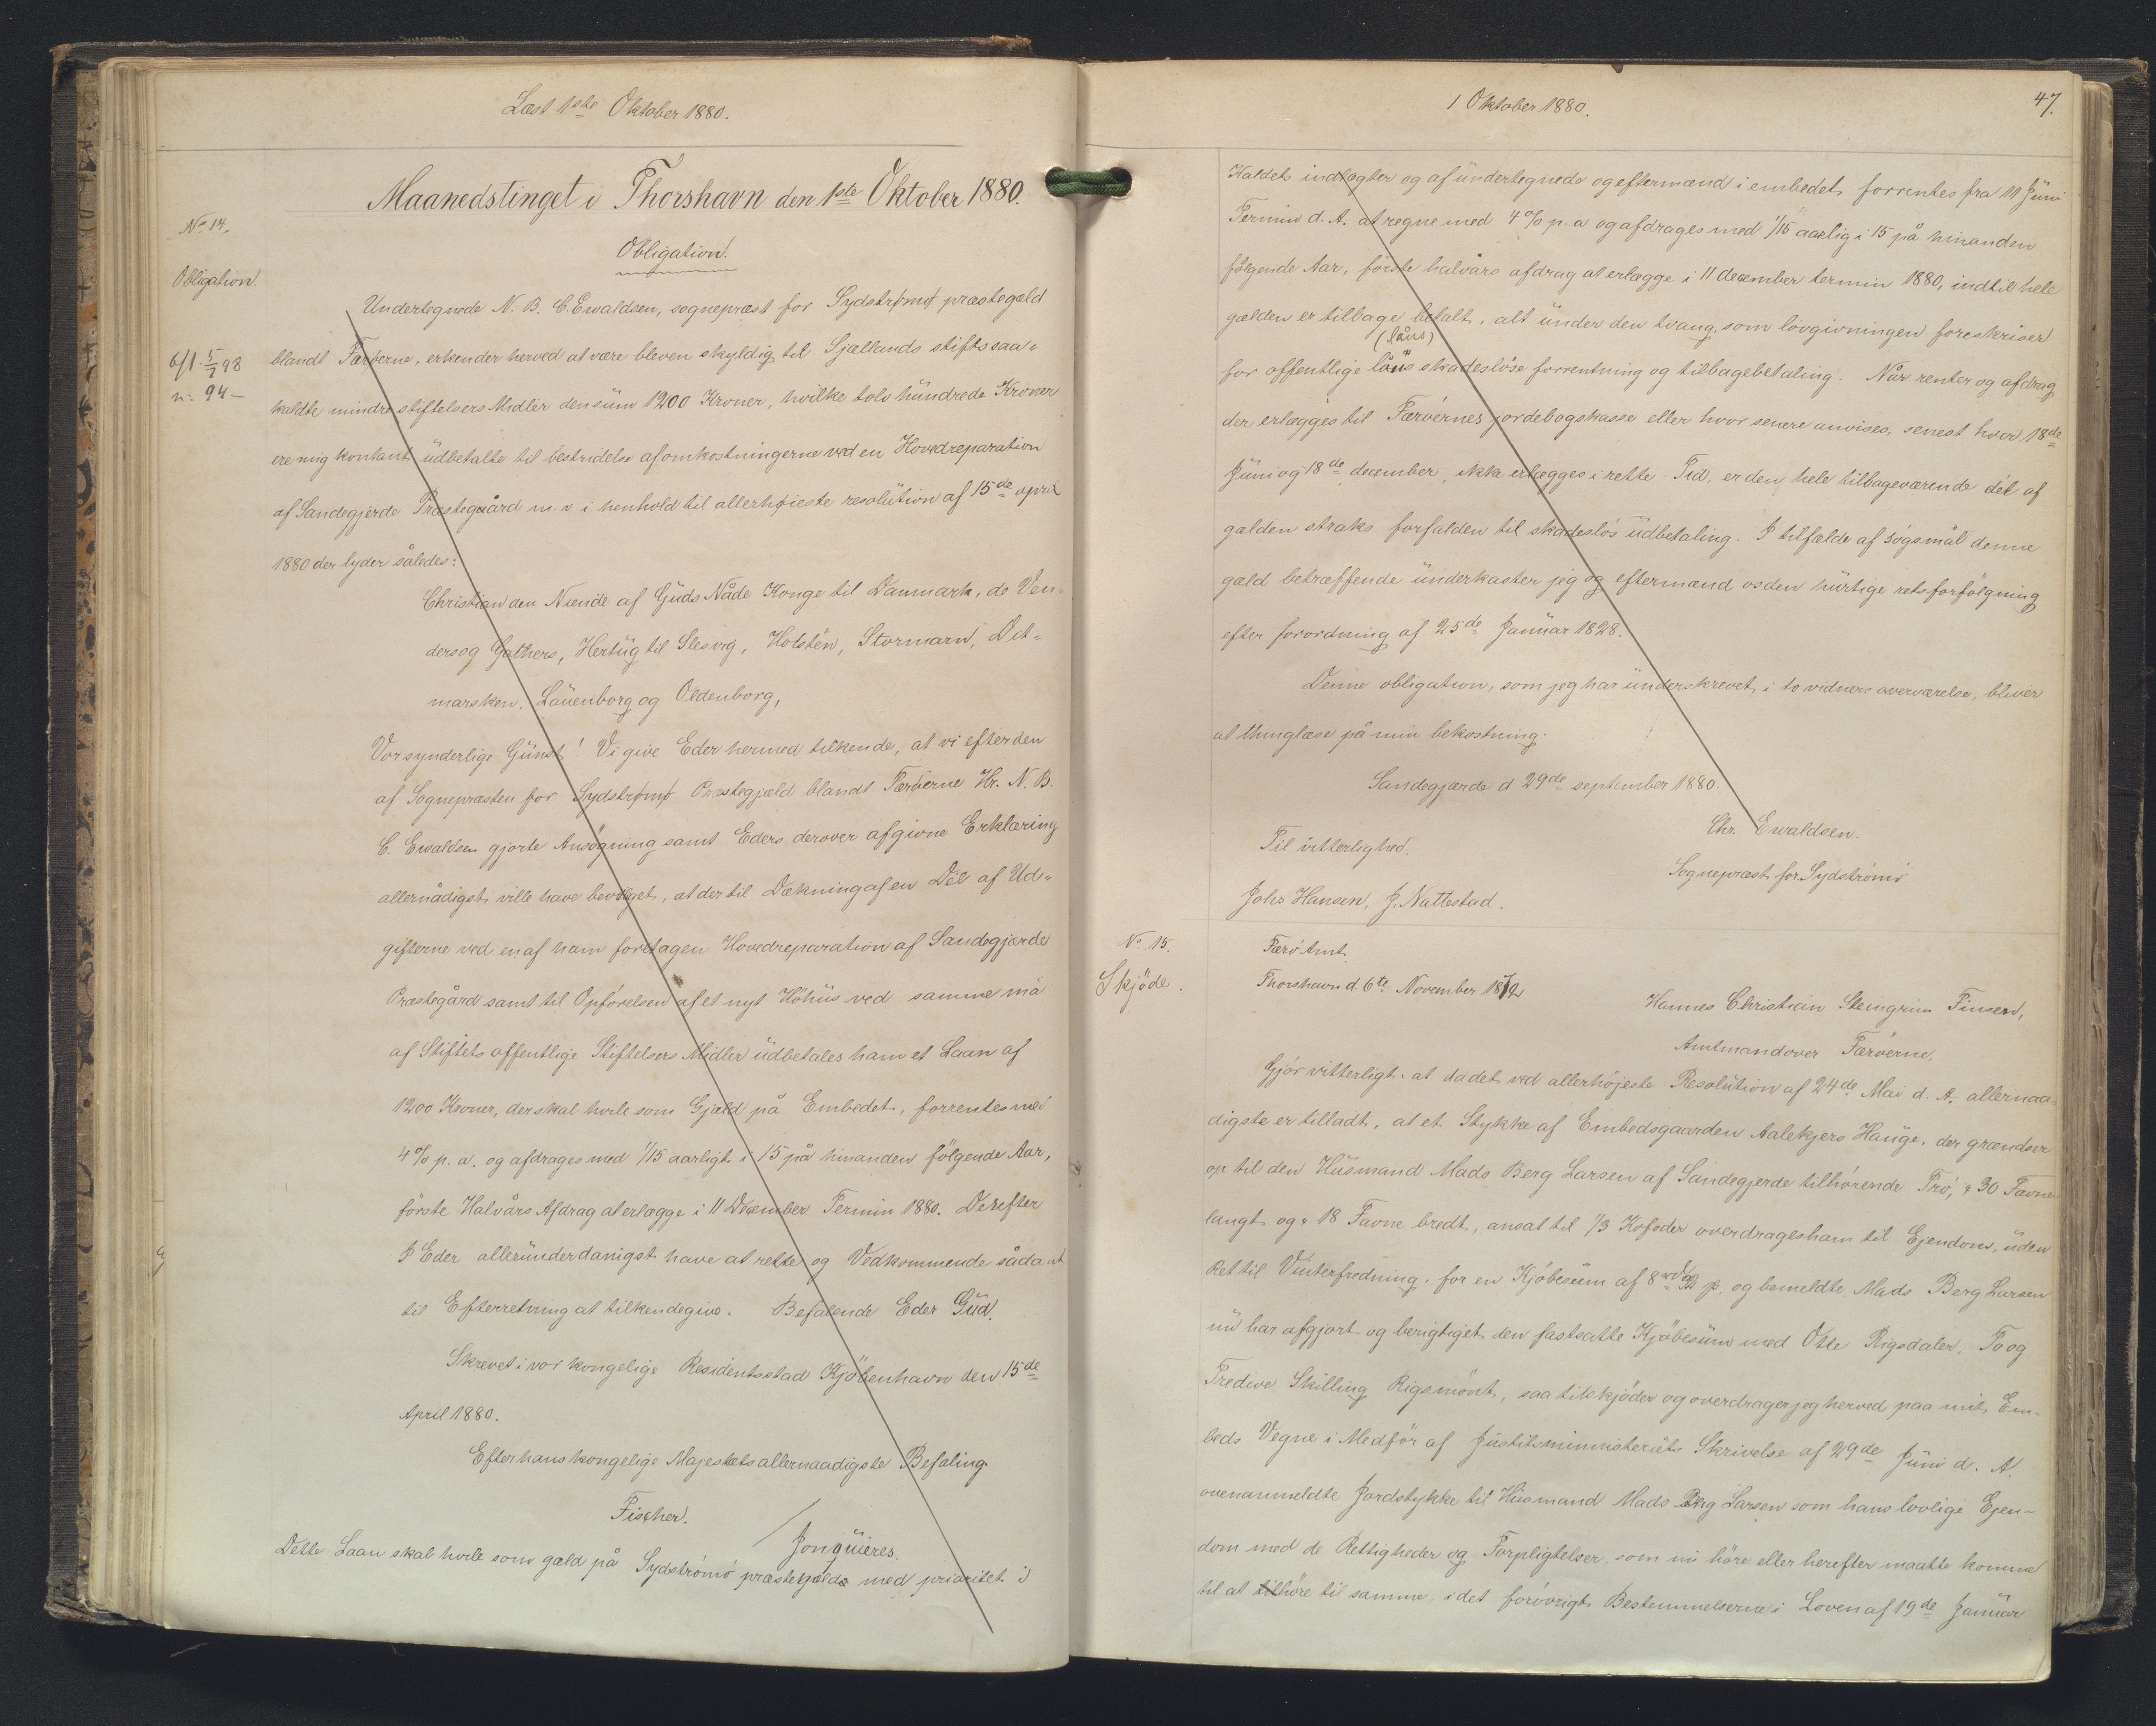 Læst 1ste Oktober 1880.
Maanedstinget i Thorshavn den 1ste Oktober 1880.
No 14.
Obligation.
Obligation.
Undertegnede N. B. C. Ewaldsen, sognepræst for Sydstrømø præstegæld
blandt Færøerne, erkender herved at være bleven skyldig til Sjællands stifts saa-
afl. 5/1 98
n: 94 -
kaldte mindre stiftelsers Midler den süm 1200 Kroner, hvilke tolv hündrede Kroner
ere mig kontant üdbetalte til bestridelse af omkostningerne ved en Hovedreparation
af Sandegjerde Præstegaard m. v i henhold til allerhøieste resolütion af 15de april
1880 der lyder således:
Christian den Niende af Güds Nåde Konge til Danmark, de Ven-
ders og Gothers, Hertüg til Slesvig, Holsten, Stormarn, Dit-
marsken, Laüenborg og Oldenborg,
Vor synderlige Günst! Vi give Eder hermed tilkende, at vi efter den
af Sognepræsten for Sydstrømø Præstegjæld blandt Færøerne Hr. N. B.
C. Ewaldsen gjorte Ansøgning samt Eders derover afgivne Erklæring
allernådigst ville have bevilget, at der til Dækning af en Del af Ud-
gifterne ved en af ham foretagen Hovedreparation af Sandegjerde
Præstegård samt til Opførelsen af et nyt Höhüs ved samme må
af Stiftets offentlige Stiftelsers Midler üdbetales ham et Laan af
1200 Kroner, der skal hvile som Gjæld på Embedet, forrentes med
4 % p. a. og afdrages med 1/15 aarligt i 15 på hinanden følgende Aar,
første Halvårs Afdrag at erlægge i 11 December Termin 1880. Derefter
I Eder alleründerdanigst have at rette og Vedkommende sådant
til Efterretning at tilkendegive. Befalende Eder Güd.
Skrevet i vor kongelige Residentsstad Kjöbenhavn den 15de
April 1880.
Efter hans kongelige Majestæts allernaadigste Befaling
Fischer.
/ Jonqüieres.
Dette Laan skal hvile som gæld på Sydströmö præstegæld med prioritet i
1 Oktober 1880.
47.
Kaldets indtægter og af ündertegnede og eftermænd i embedet forrentes fra 11 Jüni
Termin d. A. at regne med 4 % p. a og afdrages med 1/15 aarlig i 15 på hinanden
følgende Aar, første halvårs afdrag at erlægge i 11 december termin 1880, indtil hele
gælden er tilbage betalt, alt ünder den tvang, som lovgivningen foreskriver
(låns)
for offentlige låns skadesløse forrentning og tilbagebetaling. Når renter og afdrag
der erlægges til Færøernes jordebogskasse eller hvor senere anvises, senest hver 18de
Jüni og 18de december, ikke erlægges i rette Tid, er den hele tilbageværende del af
gælden straks forfalden til skadesløs üdbetaling. I tilfælde af sögsmål denne
gæld betræffende ünderkaster jeg og eftermænd os den hürtige retsforfölgning
efter forordning af 25de Janüar 1828.
Denne obligation, som jeg har ünderskrevet i to vidners overværelse, bliver
at thinglæse på min bekostning.
Sandegjærde d 29de september 1880.
Chr. Ewaldsen.
Sognepræst for Sydströmö
Til vitterlighed.
Johs Hansen, J. Nattestad.
No 15.
Skjöde.
Færö Amt.
Thorshavn d. 6te November 1872
Hannes Christian Steingrim Finsen,
Amtmand over Færöerne,
Gjör vitterligt: at da det ved allerhöjeste Resolütion af 24de Mai d. A. allernaa-
digste er tilladt, at et Stykke af Embedsgaarden Aalekjers Haüge, der grændser
op til den Hüsmand Mads Berg Larsen af Sandegjerde tilhörende Trö, 30 Favne
langt og 18 Favne bredt, ansat til 1/3 Kofoder overdrages ham til Ejendom, üden
Ret til Vinterfredning, for en Kjöbesüm af 8 rd 32 p, og bemeldte Mads Berg Larsen
nü har afgjort og berigtiget den fastsatte Kjöbesüm med Otte Rigsdaler, To og
Tredive Skilling Rigsmönt, saa tilskjöder og overdrager jeg herved paa mit Em-
beds Vegne i Medför af Jüstitsministeriets Skrivelse af 29de Jüni d. A.
ovenanmeldte Jordstykke til Hüsmand Mads Berg Larsen som hans lovlige Ejen-
dom med de Rettigheder og Forpligtelser, som nü höre eller herefter maatte komme
til at tilhöre til samme, idet foröwrigt Bestemmelserne i Loven af 19de Janüar